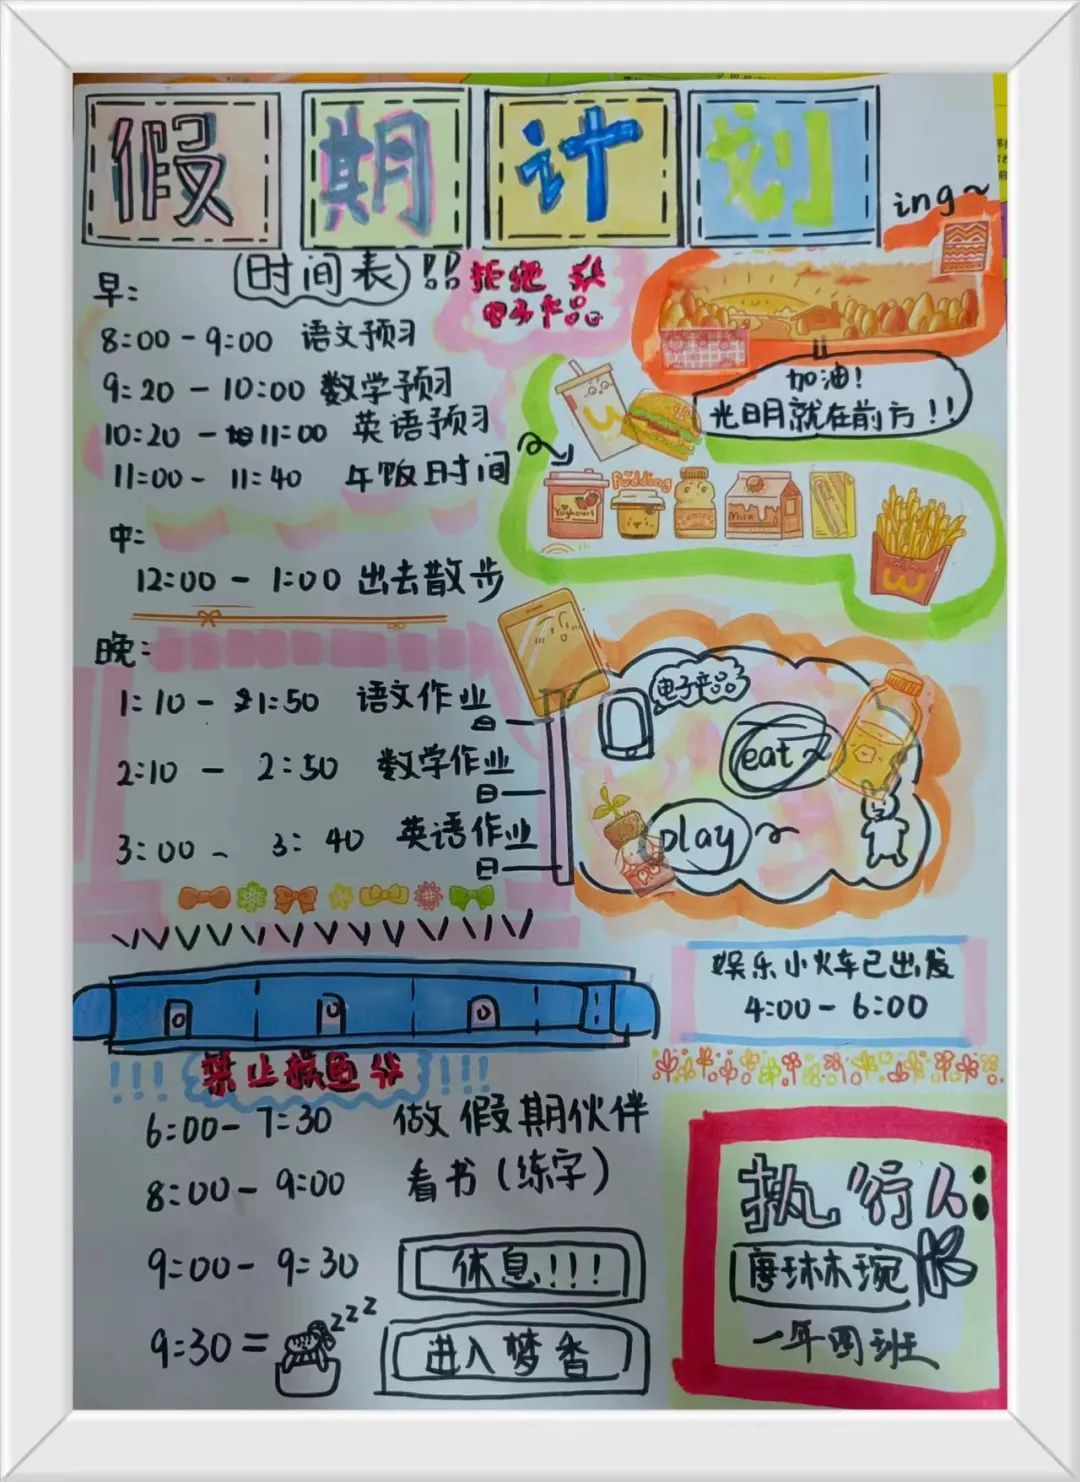 假期计划
ing~
(时间表)!!
拒绝
电子产品
早:
8:00-9:00 语文预习
9:20-10:00 数学预习
10:20-11:00 英语预习
11:00-11:40 午饭时间
加油!
光明就在前方!!
Pudding
Yoghourt
Milk
中:
12:00-1:00 出去散步
晚:
1:10-1:50 语文作业
2:10-2:50 数学作业
3:00-3:40 英语作业
电子产品
eat~
play~
娱乐小火车已出发
4:00-6:00
禁止摸鱼
!!! !!!
6:00-7:30 做假期伙伴
8:00-9:00 看书(练字)
9:00-9:30 休息!!!
9:30= zzz 进入梦香
执行人:
琳琬
一年四班